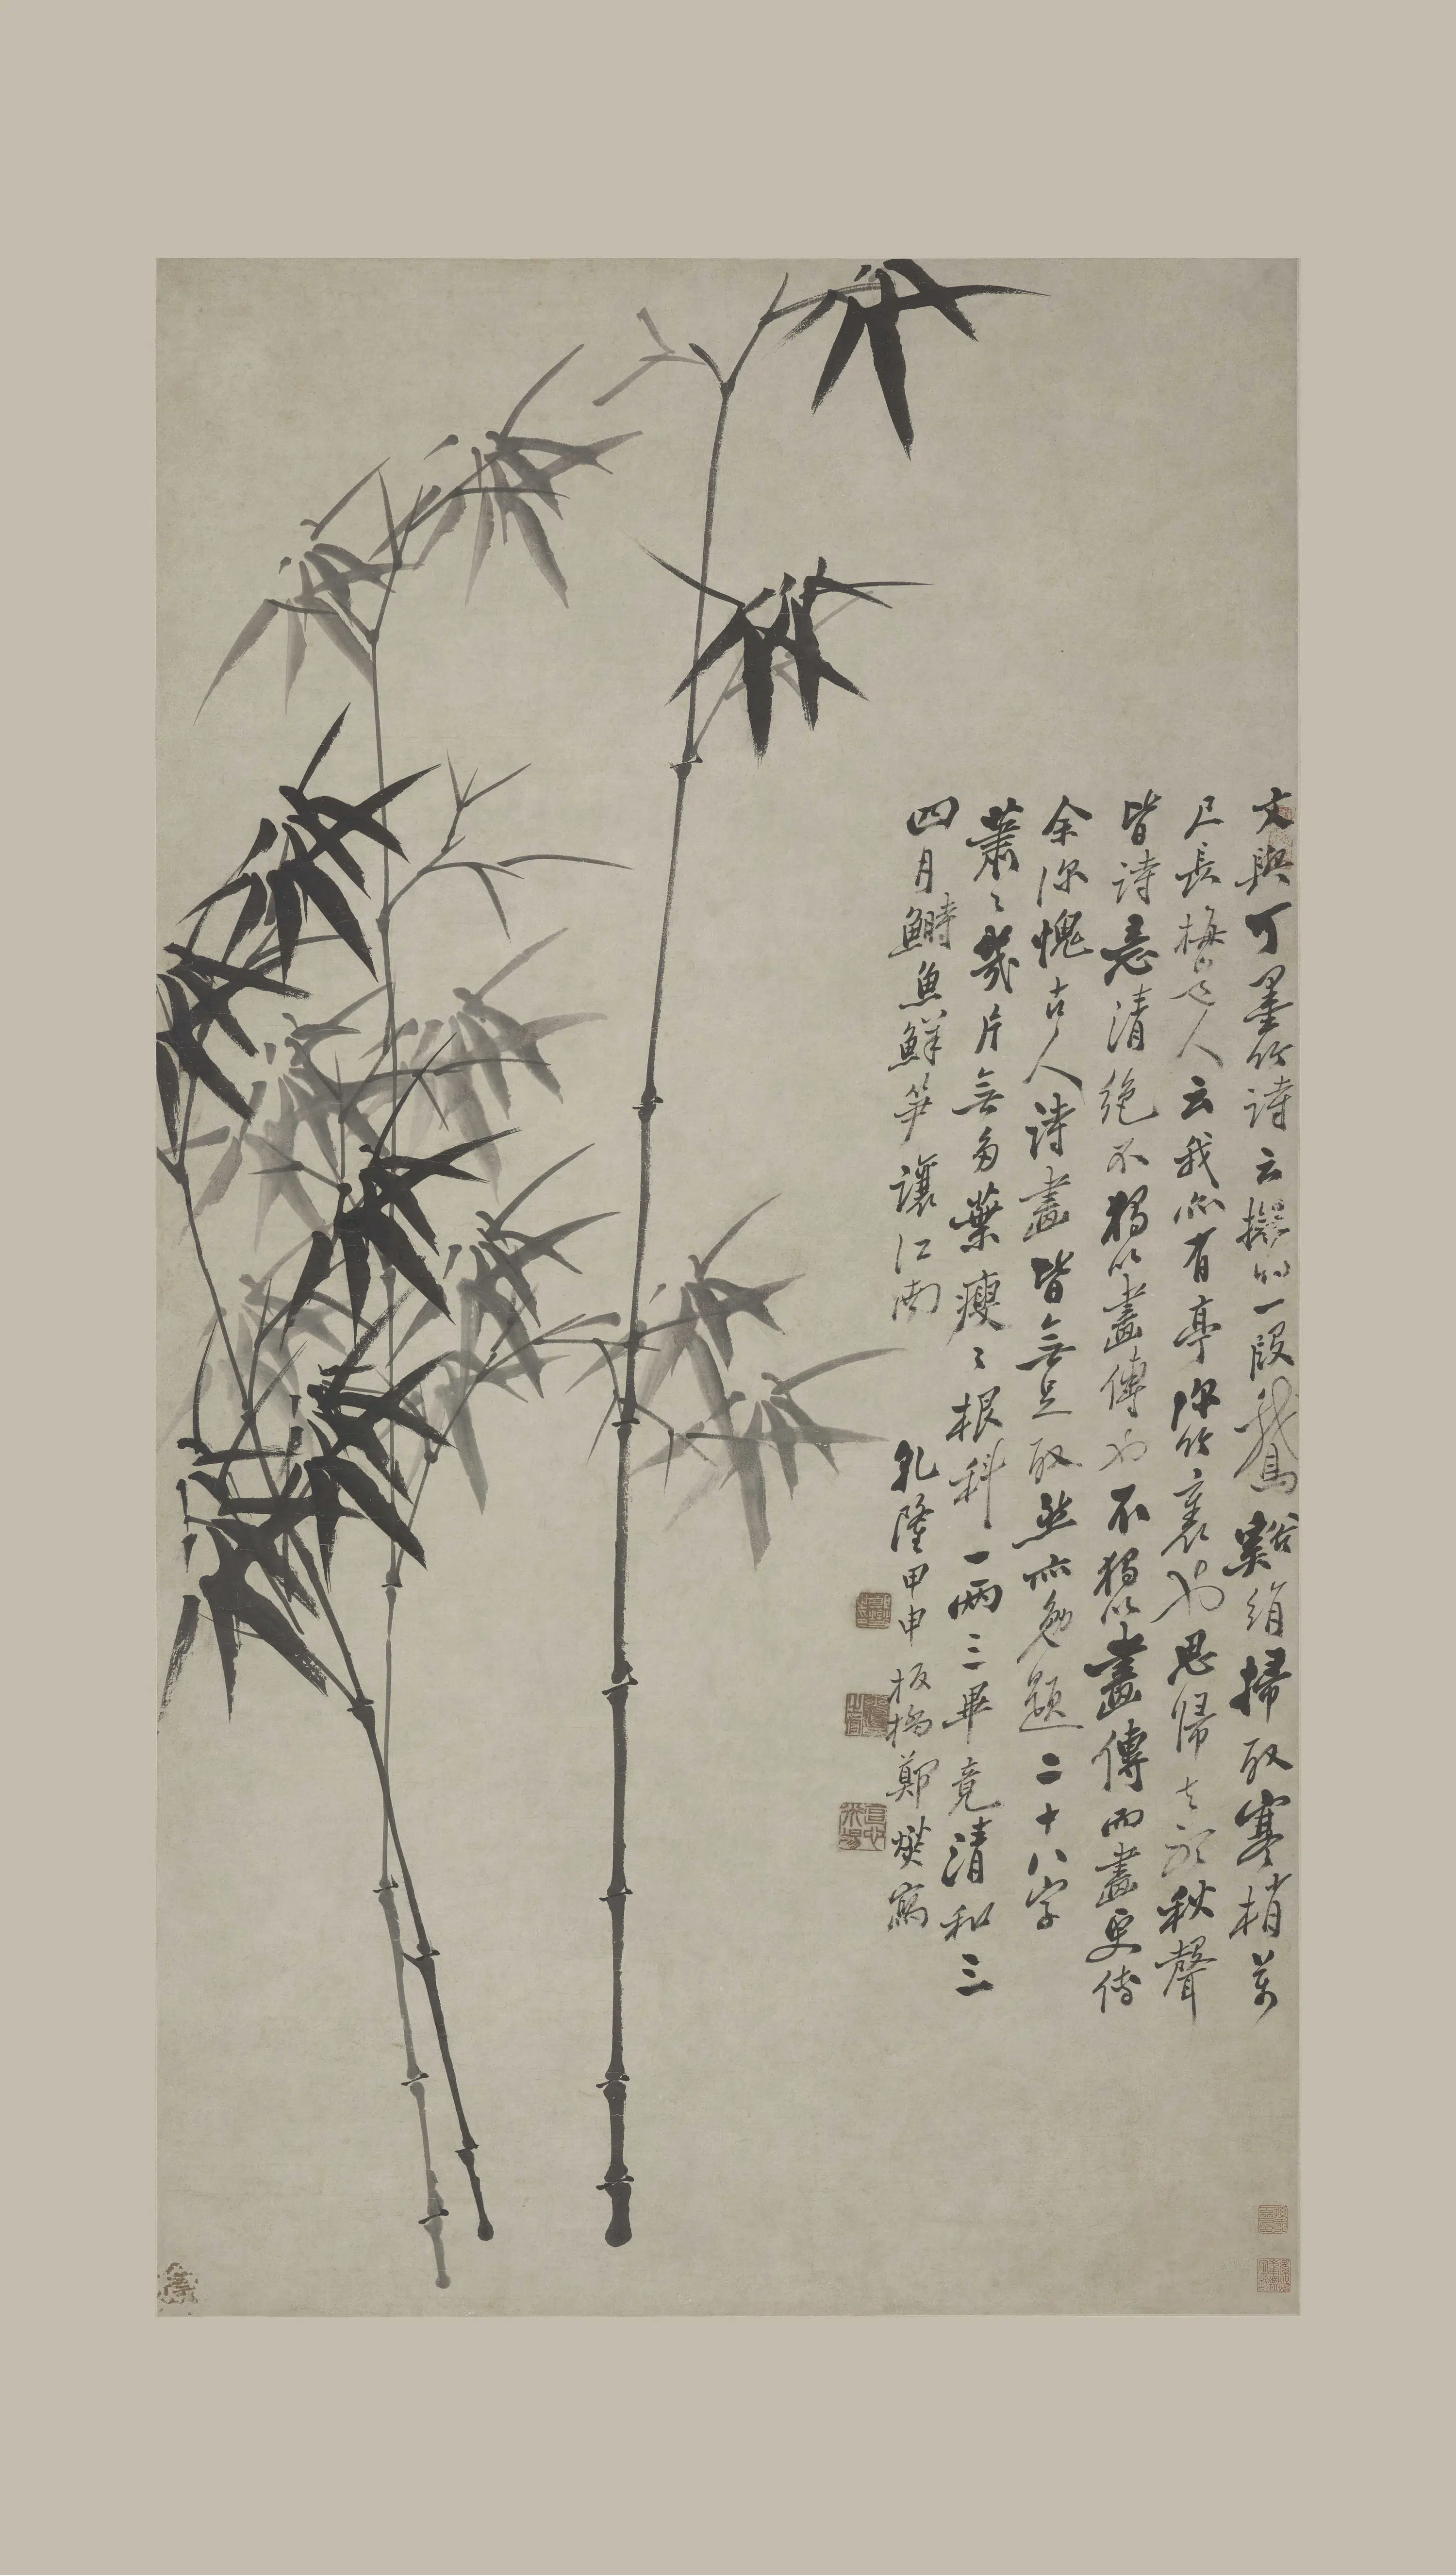 文與可墨竹詩云擬將一段鵞谿絹掃取寒梢萬
尺長梅道人云我亦有亭深竹裏也思歸去聽秋聲
皆詩意清絕不獨以畫傳也不獨以畫傳而畫更傳
余深愧古人詩畫皆無足取然亦勉題二十八字
蕭〻幾片無多葉瘦〻根科一兩三畢竟清和三
四月鰣魚鮮笋讓江南
乾隆甲申板橋鄭燮寫